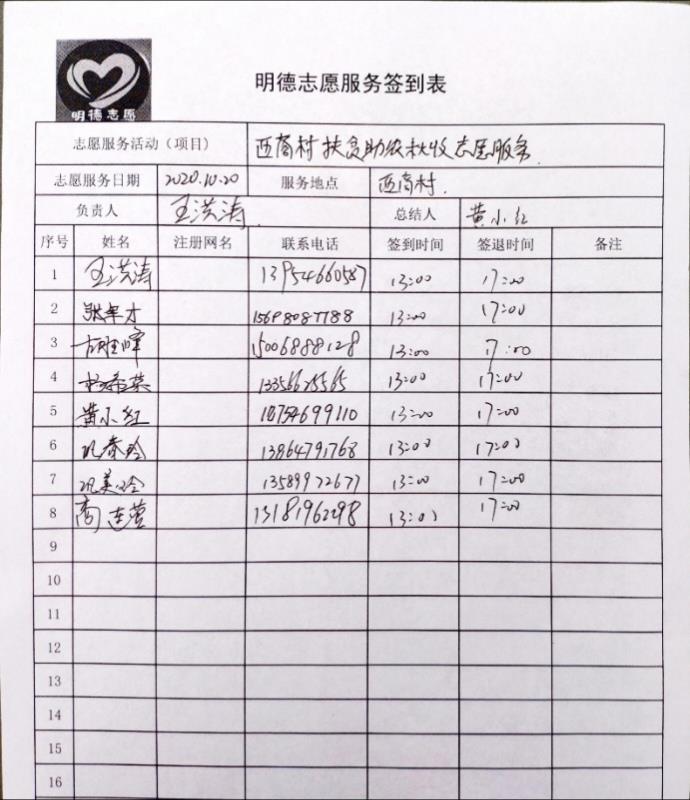 明德志愿
明德志愿服务签到表
志愿服务活动（项目） 西商村扶贫助农秋收志愿服务
志愿服务日期 2020.10.20 服务地点 西商村.
负责人 王洪涛 总结人 黄小红
序号 姓名 注册网名 联系电话 签到时间 签退时间 备注
1 王洪涛 13954660587 13:00 17:00
2 张军才 15698087788 13:00 17:00
3 15006888128 13:00 17:00
4 13356625565 13:00 17:00
5 黄小红 13:00 17:00
6 巩春玲 13864791768 13:00 17:00
7 巩美玲 13589972677 13:00 17:00
8 商连营 13181962298 13:00 17:00
9
10
11
12
13
14
15
16